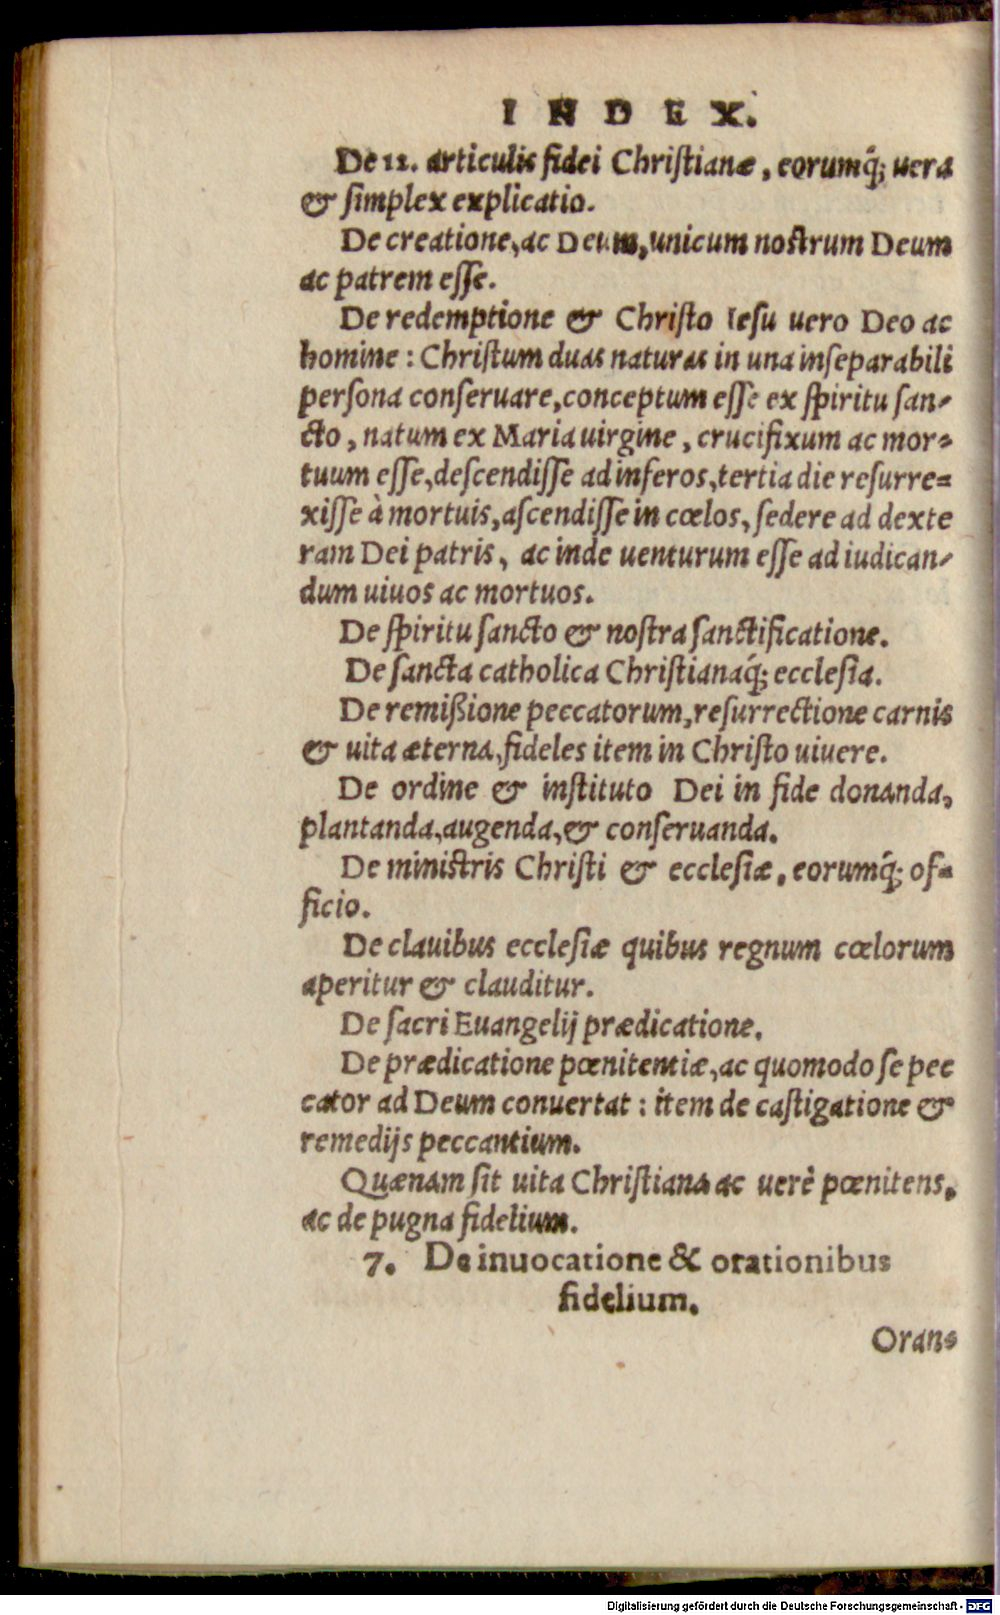 INDEX.
De 12. articulis fidei Christianæ, eorumq́; uera
& simplex explicatio.
De creatione, ac Deum, unicum nostrum Deum
ac patrem esse.
De redemptione & Christo Iesu uero Deo ac
homine: Christum duas naturas in una inseparabili
persona conseruare, conceptum esse ex spiritu san-
cto, natum ex Maria uirgine, crucifixum ac mor-
tuum esse, descendisse ad inferos, tertia die resurre-
xisse à mortuis, ascendisse in cœlos, sedere ad dexte
ram Dei patris, ac inde uenturum esse ad iudican-
dum uiuos ac mortuos.
De spiritu sancto & nostra sanctificatione.
De sancta catholica Christianaq́; ecclesia.
De remißione peccatorum, resurrectione carnis
& uita æterna, fideles item in Christo uiuere.
De ordine & instituto Dei in fide donanda,
plantanda, augenda, & conseruanda.
De ministris Christi & ecclesiæ, eorumq́; of-
ficio.
De clauibus ecclesiæ quibus regnum cœlorum
aperitur & clauditur.
De sacri Euangelij prædicatione.
De prædicatione pœnitentiæ, ac quomodo se pec
cator ad Deum conuertat: item de castigatione &
remedijs peccantium.
Quænam sit uita Christiana ac uerè pœnitens,
ac de pugna fidelium.
7. De inuocatione & orationibus
fidelium.
Orans
Digitalisierung gefördert durch die Deutsche Forschungsgemeinschaft - DFG